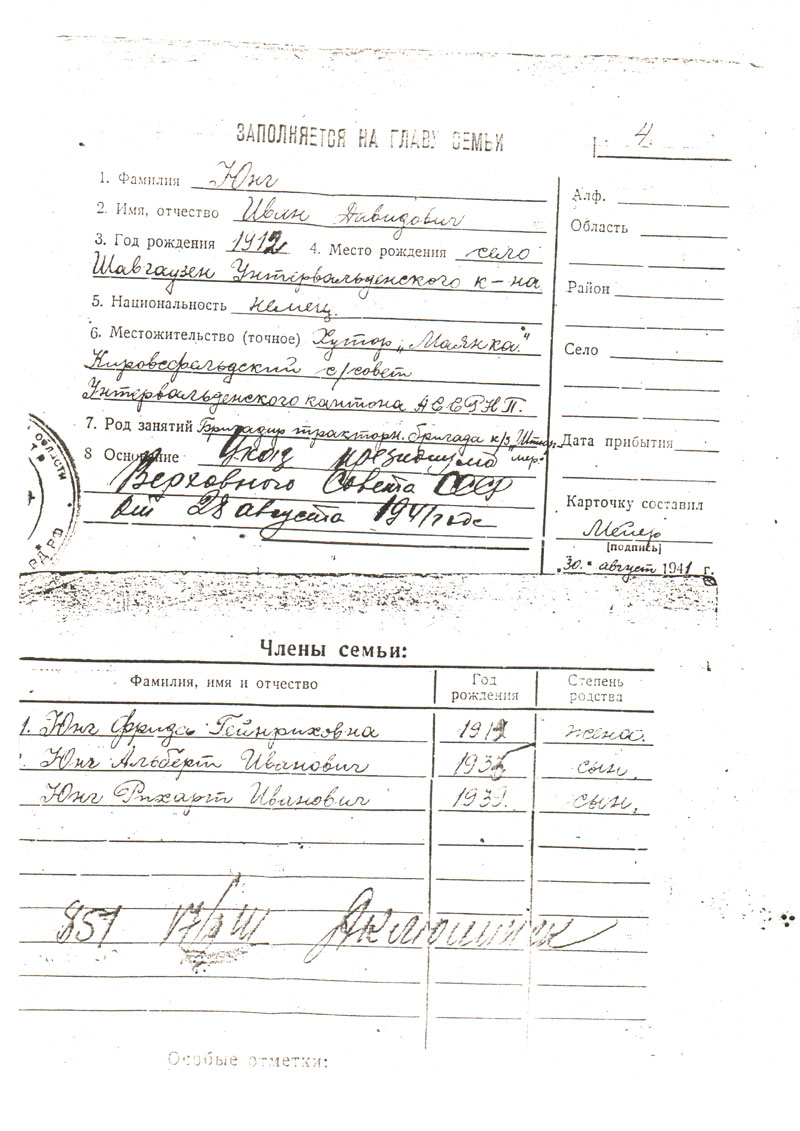 ЗАПОЛНЯЕТСЯ НА ГЛАВУ СЕМЬИ
4
1. Фамилия Юнг
2. Имя, отчество Иван Давидович
3. Год рождения 1912 4. Место рождения село
Шавгаузен Унтервальденского к-на
5. Национальность немец.
6. Местожительство (точное) Хутор „Маянка"
с/совет
Унтервальденского кантона
7. Род занятий Бригадир тракторн. бригада к/з
8 Основание Указ президиума
Верховного Совета СССР
от 28 августа 1941 года
Алф.
Область
Район
Село
Дата прибытия
Карточку составил
Мейер
[подпись]
„30" август 1941 г.
ОБЛАСТИ
Члены семьи:
Фамилия, имя и отчество
Год рождения
Степень родства
1. Юнг Фрида Гейнриховна 1912 жена.
Юнг Альберт Иванович 1935 сын,
Юнг Рихарт Иванович 1939. сын,
851
Особые отметки: